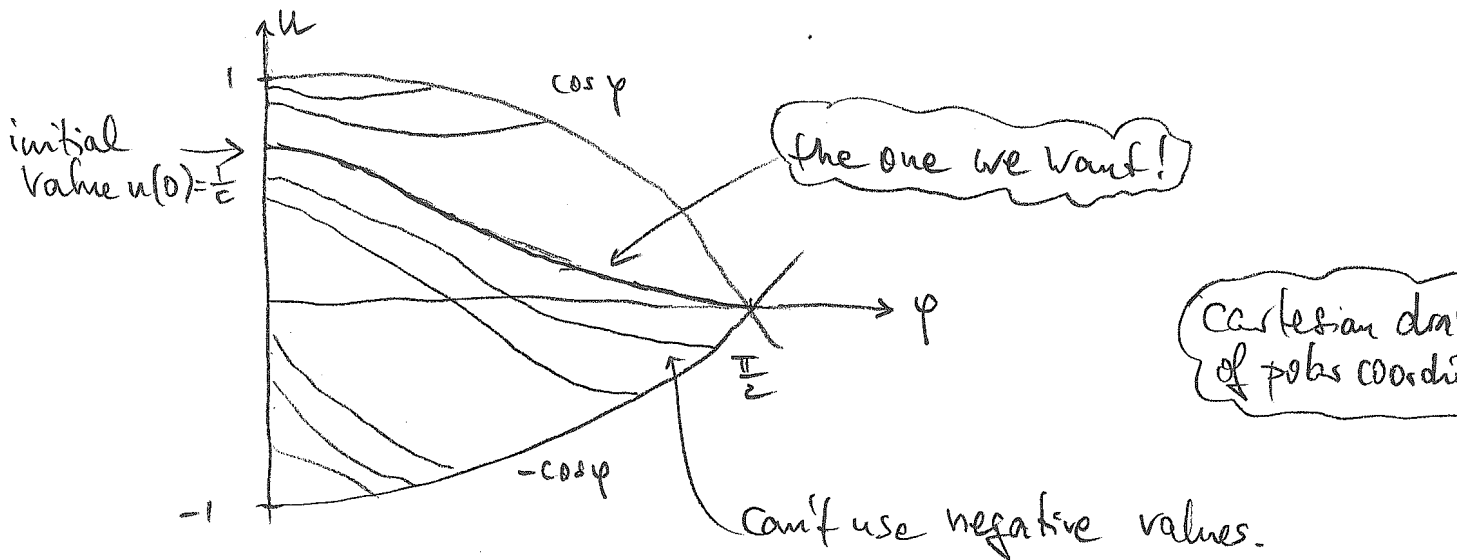 u
1
cos φ
initial
value u(0)=
the one we want!
φ
π/2
Cartesian dra
of polar coordi
-cosφ
-1
can't use negative values.